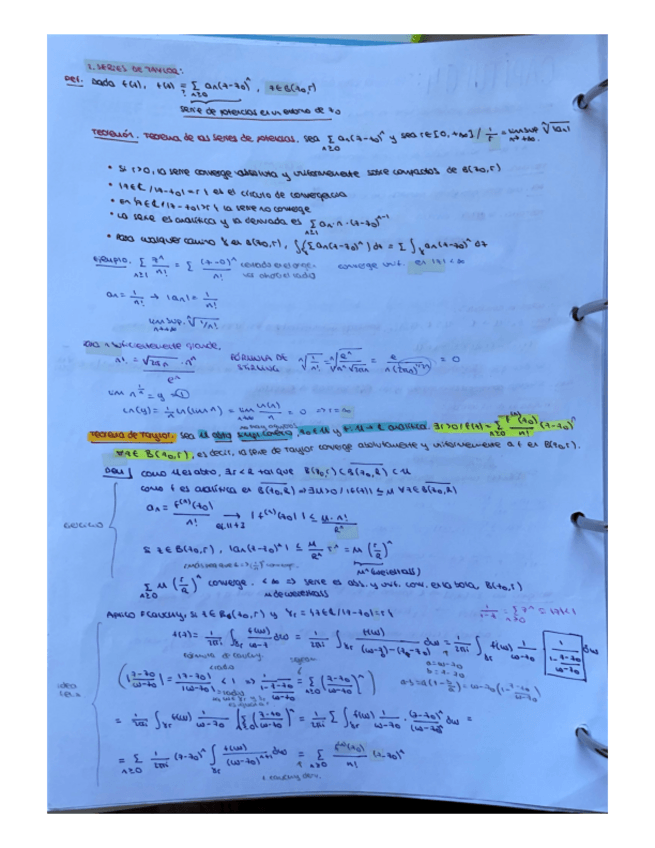 1. SERIES DE TAYLOR:
Def. Dada f(z), f(z) = Σ_{n≥0} an(z-z0)^n, z∈B(z0,r)
serie de potencias en un entorno de z0
Teorema de las series de potencias. Sea Σ_{n≥0} an(z-z0)^n y sea r∈[0,+∞] / 1/r = lim sup_{n→+∞} ⁿ√|an|.
• Si r>0, la serie converge absoluta y uniformemente sobre compactos de B(z0,r)
• {z∈ℂ / |z-z0|=r} es el círculo de convergencia
• en {z∈ℂ / |z-z0|>r} la serie no converge
• La serie es analítica y la derivada es Σ_{n≥1} an·n·(z-z0)^{n-1}
• Para cualquier camino γ en B(z0,r), ∫_γ(Σ an(z-z0)^n) dz = Σ ∫_γ an(z-z0)^n dz
Ejemplo. Σ_{n≥1} z^n/n! = Σ (z-0)^n/n! converge unif. en |z|<∞
an = 1/n! → |an| = 1/n!
lim sup_{n→+∞} ⁿ√(1/n!)
n suficientemente grande,
n! = √(2πn) · n^n / e^n FÓRMULA DE STIRLING ⁿ√(1/n!) = = 0
lim n^{1/n} = y =
ln(y) = = lim_{n→∞} ln(n)/n = 0 ⇒ r=∞
Teorema de Taylor. Sea U abto simp conexo, z0∈U y f: U→ℂ analítica. ∃r>0 / f(z) = Σ_{n≥0} f^(n)(z0)/n! (z-z0)^n
∀z∈B(z0,r), es decir, la serie de Taylor converge absolutamente y uniformemente a f en B(z0,r).
Dem] Como U es abto, ∃r<R tal que B(z0,r)⊂B(z0,R)⊂U
Como f es analítica en B(z0,R) ⇒ ∃M>0 / |f(z)| ≤ M ∀z∈B(z0,R)
an = f^(n)(z0)/n! → |f^(n)(z0)| ≤ M·n!/R^n
Si z∈B(z0,r), |an(z-z0)^n| ≤ M/R^n r^n = M(r/R)^n
Σ_{n≥0} M(r/R)^n converge, <∞ ⇒ serie es abs. y unif. conv. en la bola, B(z0,r)
M de Weierstrass
Aplico F Cauchy, si z∈B(z0,r) y γr = {z∈ℂ / |z-z0|=r}
f(z) = 1/2πi ∫_γr f(w)/(w-z) dw = 1/2πi ∫_γr f(w)/((w-z0)-(z-z0)) dw = 1/2πi ∫_γr f(w)/(w-z0) · 1/(1-(z-z0)/(w-z0)) dw
Fórmula de Cauchy
(|(z-z0)/(w-z0)| = |z-z0|/|w-z0| < 1 ⇒ 1/(1-(z-z0)/(w-z0)) = Σ_{n≥0} ((z-z0)/(w-z0))^n)
= 1/2πi ∫_γr f(w) 1/(w-z0) [Σ_{n≥0} ((z-z0)/(w-z0))^n] = 1/2πi Σ ∫_γr f(w) 1/(w-z0) · (z-z0)^n/(w-z0)^n dw =
= Σ_{n≥0} 1/2πi (z-z0)^n ∫_γr f(w)/(w-z0)^{n+1} dw = Σ_{n≥0} f^(n)(z0)/n! (z-z0)^n